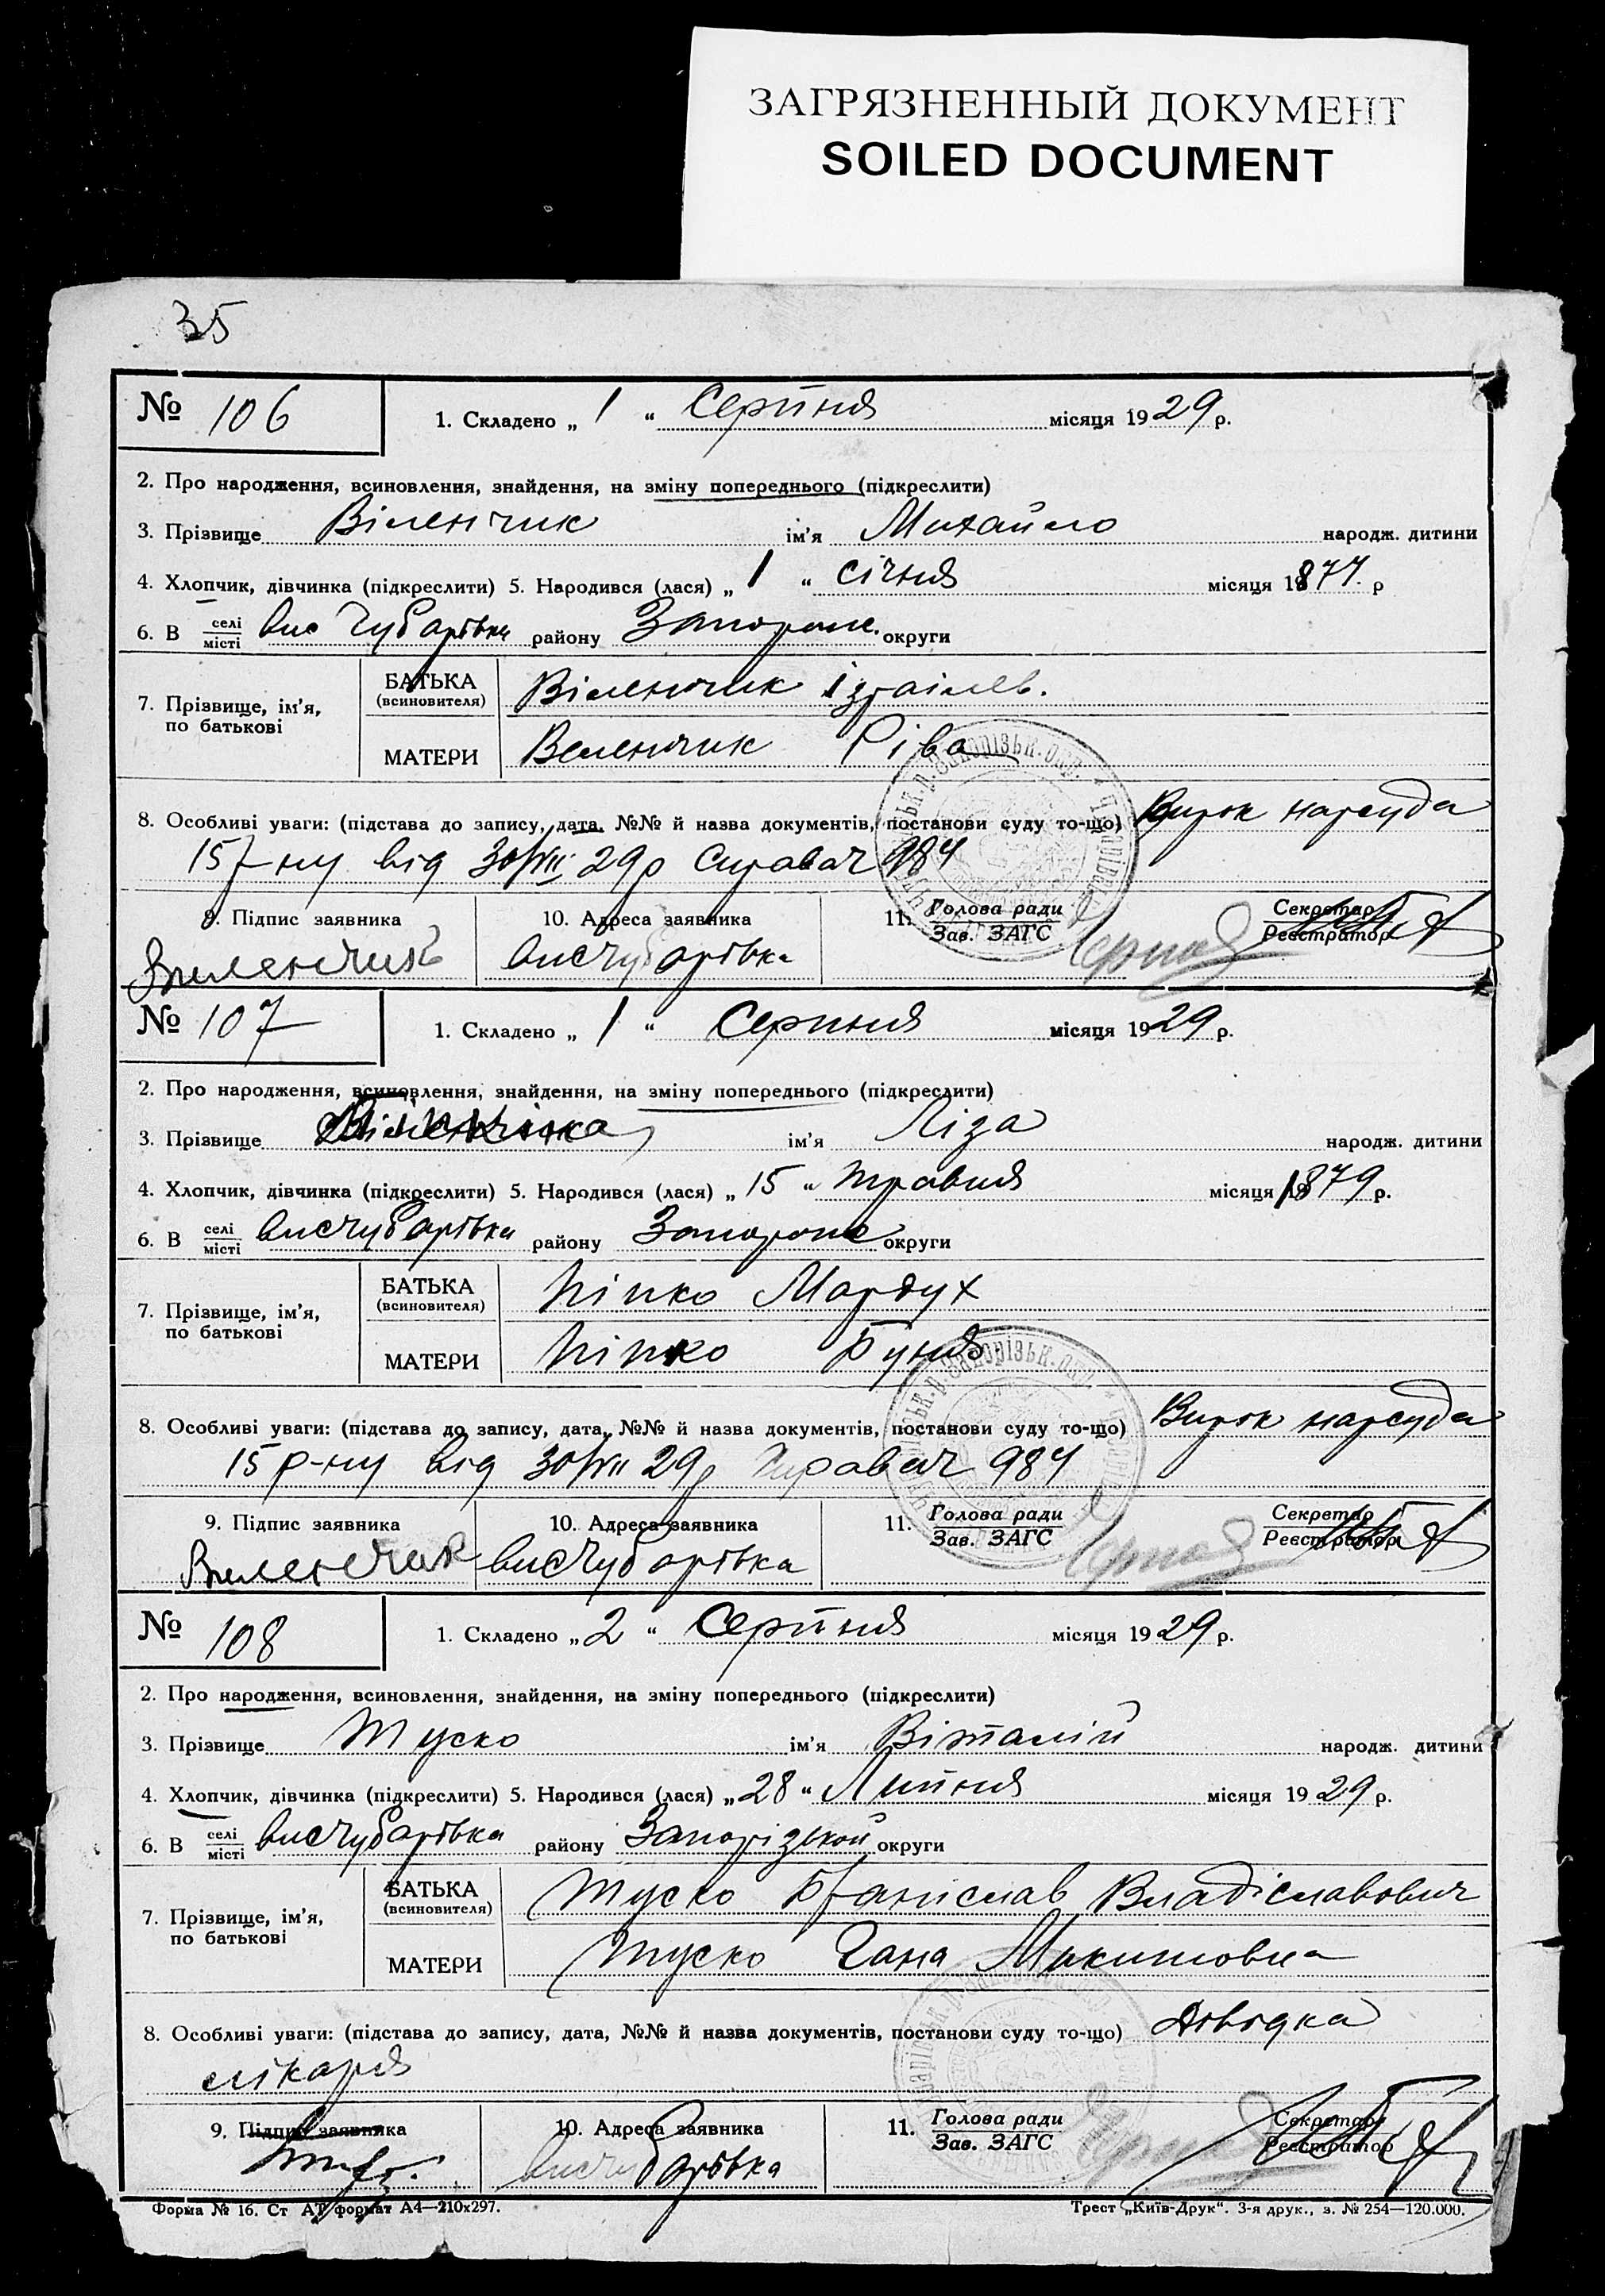 ЗАГРЯЗНЕННЫЙ ДОКУМЕНТ
SOILED DOCUMENT
35
№ 106
1. Складено „ 1 “ Серпня місяця 1929 р.
2. Про народження, всиновлення, знайдення, на зміну попереднього (підкреслити)
3. Прізвище Віленчик ім'я Михайло народж. дитини
4. Хлопчик, дівчинка (підкреслити) 5. Народився (лася) „ 1 “ січня місяця 1877 р
6. В селі місті вис Чубарівка району Запорож. округи
7. Прізвище, ім'я, по батькові
БАТЬКА (всиновителя) Віленчик Ізраілев.
МАТЕРИ Веленчик Ріва
8. Особливі уваги: (підстава до запису, дата, №№ й назва документів, постанови суду то-що) Вирок нарсуда
15 р-ну від 30/VII 29р Справа ч 984
9. Підпис заявника 10. Адреса заявника 11. Голова ради Зав. ЗАГС Секретар Реєстратор
Виленчик вис Чубарівка
№ 107
1. Складено „ 1 “ Серпня місяця 1929 р.
2. Про народження, всиновлення, знайдення, на зміну попереднього (підкреслити)
3. Прізвище ім'я Ліза народж. дитини
4. Хлопчик, дівчинка (підкреслити) 5. Народився (лася) „ 15 “ травня місяця 1879 р.
6. В селі місті вис Чубарівка району Запорож округи
7. Прізвище, ім'я, по батькові
БАТЬКА (всиновителя) Піпко Мордух
МАТЕРИ Піпко Буня
8. Особливі уваги: (підстава до запису, дата, №№ й назва документів, постанови суду то-що) Вирок нарсуда
15 р-ну від 30/VII 29р Справа ч 984
9. Підпис заявника 10. Адреса заявника 11. Голова ради Зав. ЗАГС Секретар Реєстратор
Виленчик вис Чубарівка
№ 108
1. Складено „ 2 “ Серпня місяця 1929 р.
2. Про народження, всиновлення, знайдення, на зміну попереднього (підкреслити)
3. Прізвище Туско ім'я Віталій народж. дитини
4. Хлопчик, дівчинка (підкреслити) 5. Народився (лася) „ 28 “ Липня місяця 1929 р.
6. В селі місті вис Чубарівка району Запорізькой округи
7. Прізвище, ім'я, по батькові
БАТЬКА (всиновителя) Туско Браніслав Владіславович
МАТЕРИ Туско Гана Микитовна
8. Особливі уваги: (підстава до запису, дата, №№ й назва документів, постанови суду то-що) Довідка
лікаря
9. Підпис заявника 10. Адреса заявника 11. Голова ради Зав. ЗАГС Секретар Реєстратор
вис Чубарівка
Форма № 16. Ст АТ формат А4—210х297.
Трест „Київ-Друк“. 3-я друк., з. № 254—120.000.